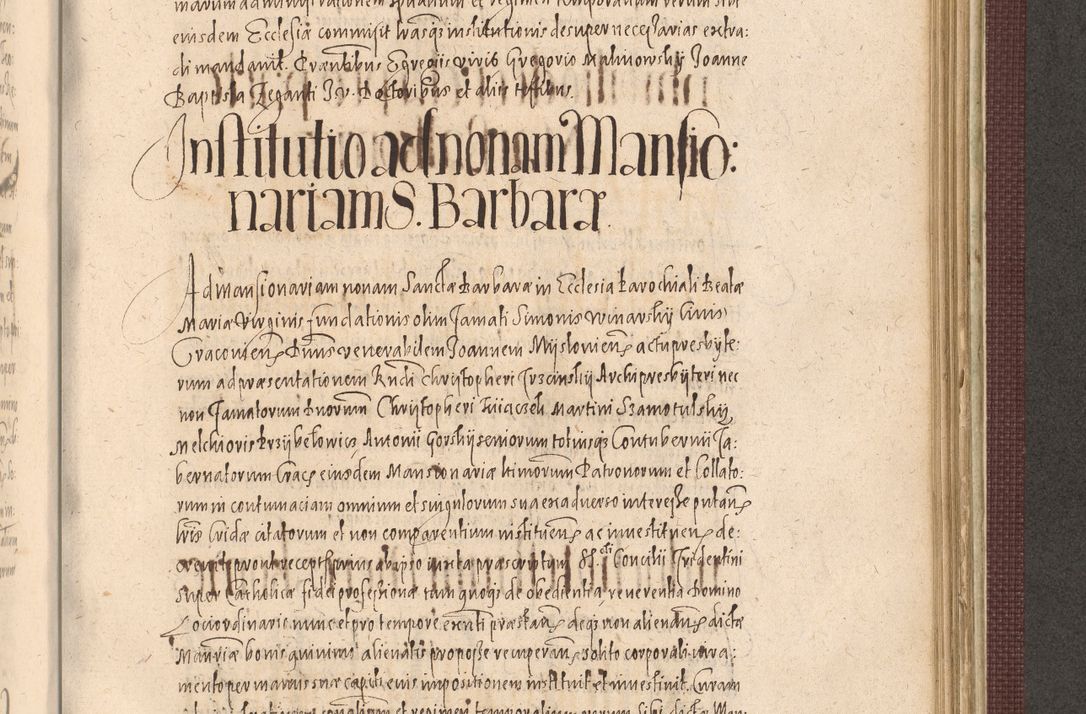 eiusdem Ecclesiæ commisit l̃rasq̃ institutionis desuper necessarias extra:
di mandavit. Præsentibus Egregiis viris Gregorio Malinowskÿ Joanne
Baptista Zeganti J. V. Doctoribus et aliis testibus.
Institutio ad nonam Mansio:
nariam S. Barbaræ.
Ad mansionariam nonam Sanctæ Barbaræ in Ecclesia Parochiali Beatæ
Mariæ Virginis fundationis olim famati Simonis Winarskÿ Civis
Cracovien̄ Dn̄us venerabilem Joannem Mÿslovien̄ actu presbÿte:
rum ad præsentationem Rn̄di Christopheri Trzcinskÿ Archipresbÿteri nec
non famatorum Dnorum Christopheri Martini Szamotulskÿ
Melchioris Przÿbełowicz Antonii Gorskÿ seniorum totiusq̃ Contubernii Ta:
bernatorum Crac̄ eiusdem Mansionariæ Patronorum et Collato:
rum in contumaciam omnium et singulorum sua ex adverso interesse putan̄
citatorum et non comparentium instituen̄ ac investituen̄ de:
crevit prout recepta prius ab ipso iuxta præscriptum SS.cti Concilii Tridentini
super Catholicæ fidei professione tum quoq̃ de obedientia, reverentia Domino
Loci ordinario nunc et pro tempore exn̄ti præstan̄ deq̃ non alienan̄ dictæ
Man̄riæ bonis quinimo alienatis proposse recuperan̄ solito corporali iura:
mento per manus suæ capiti eius impositionem instituit et investivit. Curam